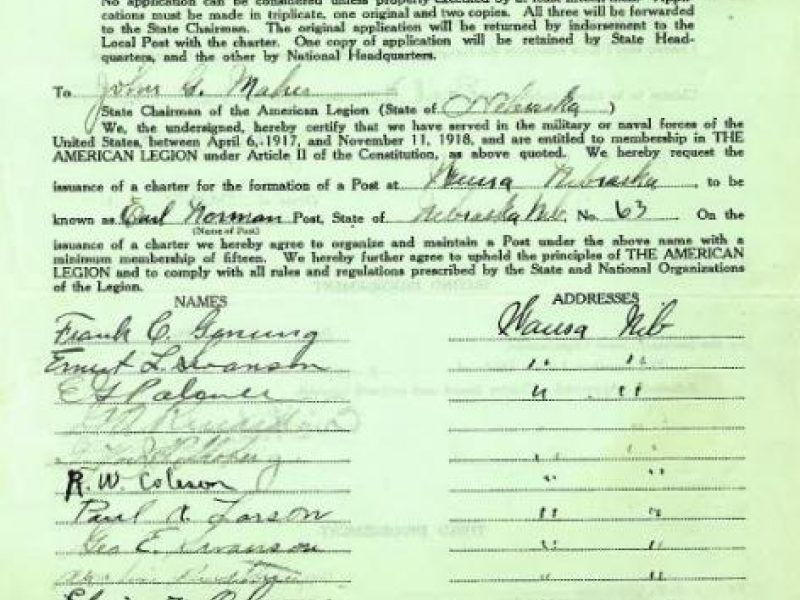 No application can be considered unless properly executed by at least fifteen men. Appli-
cations must be made in triplicate, one original and two copies. All three will be forwarded
to the State Chairman. The original application will be returned by indorsement to the
Local Post with the charter. One copy of application will be retained by State Head-
quarters, and the other by National Headquarters.
To John G. Maher
State Chairman of the American Legion (State of Nebraska )
We, the undersigned, hereby certify that we have served in the military or naval forces of the
United States, between April 6, 1917, and November 11, 1918, and are entitled to membership in THE
AMERICAN LEGION under Article II of the Constitution, as above quoted. We hereby request the
issuance of a charter for the formation of a Post at Wausa Nebraska, to be
known as Earl Norman Post, State of Nebraska Neb. No. 63 On the
(Name of Post)
issuance of a charter we hereby agree to organize and maintain a Post under the above name with a
minimum membership of fifteen. We hereby further agree to uphold the principles of THE AMERICAN
LEGION and to comply with all rules and regulations prescribed by the State and National Organizations
of the Legion.
NAMES ADDRESSES
Frank C. Genung Wausa Neb
Ernest L. Swanson " "
" "
R. W. Coleson " "
Paul A. Larson " "
Geo E. Swanson " "
" "